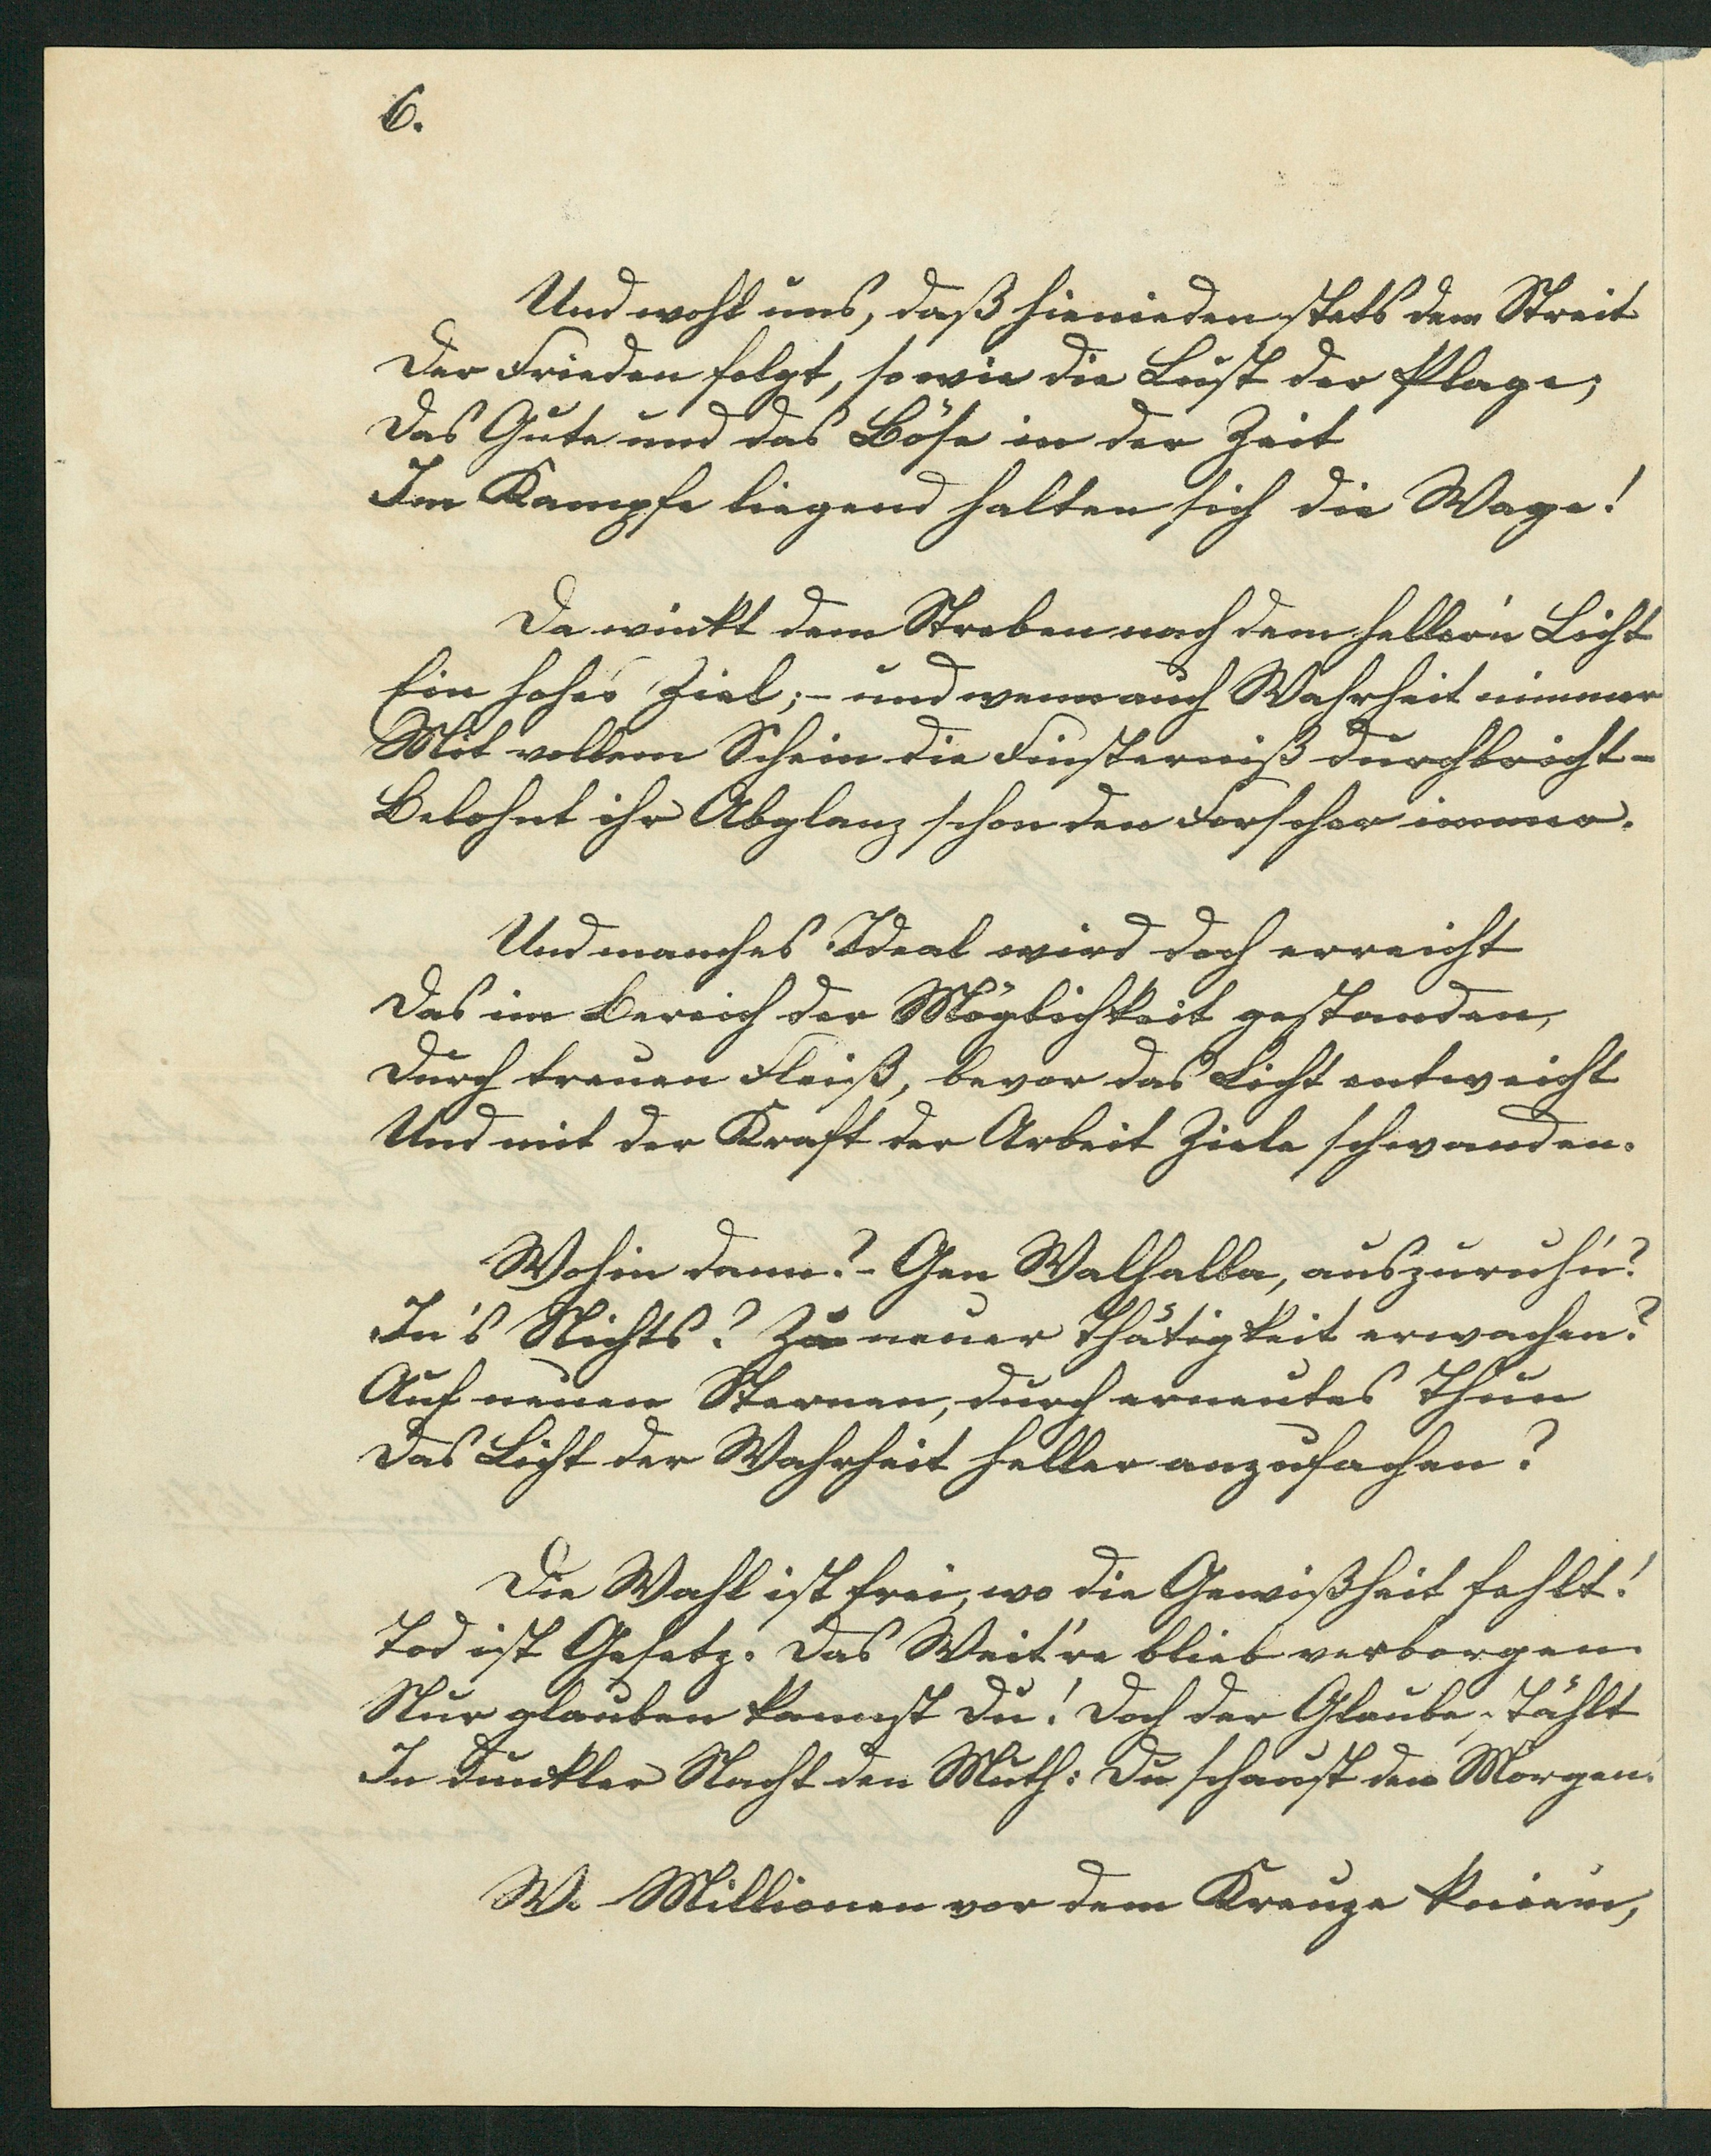 6.
Und wohl uns, daß hienieden stets dem Streit
Der Frieden folgt, sowie die Lust der Plage;
Das Gute und das Böse in der Zeit
Im Kampfe liegend halten sich die Wage!
Da winkt dem Streben nach dem hellern Licht
Ein hohes Ziel; – und wenn auch Wahrheit nimmer
Mit vollem Schein die Finsterniß durchbricht –
Belohnt ihr Abglanz schon den Forscher immer.
Und manches Ideal wird doch erreicht
Das im Bereich der Möglichkeit gestanden,
Durch treuen Fleiß, bevor das Licht entweicht
Und mit der Kraft der Arbeit Ziele schwanden.
Wohin dann? – Gen Walhalla, auszuruh'n?
In's Nichts? Zu neuer Thätigkeit erwachen?
Auf neuen Sternen, durch erneutes Thun
Das Licht der Wahrheit heller anzufachen?
Die Wahl ist frei, wo die Gewißheit fehlt!
Tod ist Gesetz. Das Weit're blieb verborgen.
Nur glauben kannst Du! Doch der Glaube stählt
In dunkler Nacht den Muth: Du schaust den Morgen.
W. Millionen vor dem Kreuze knieen,